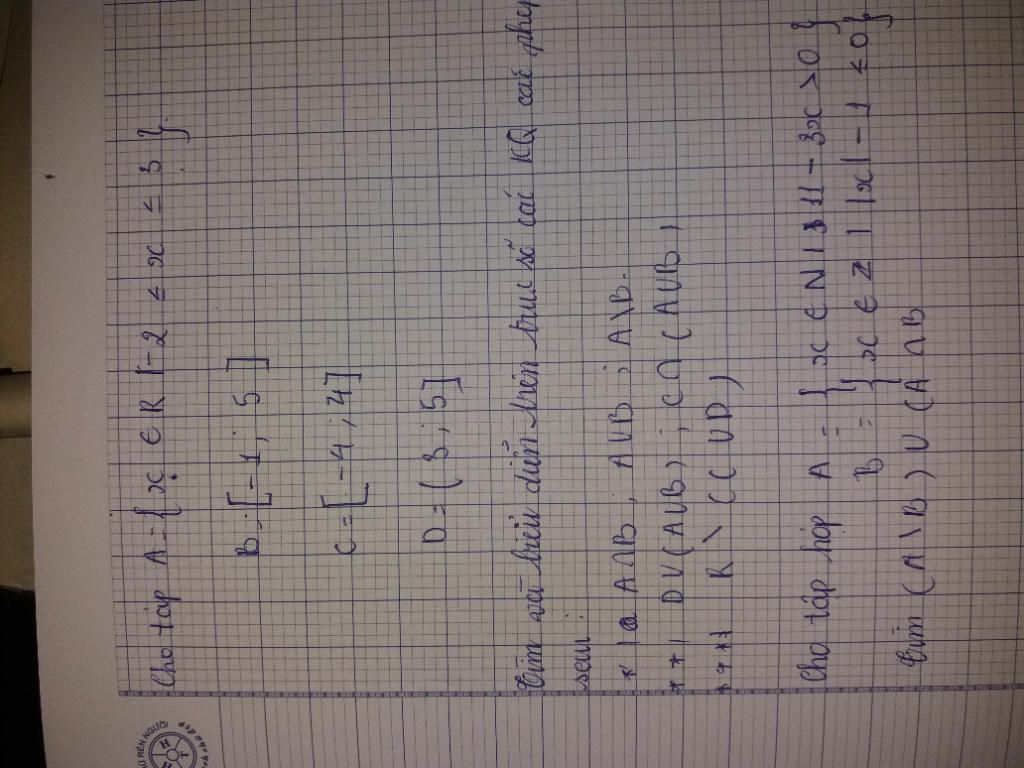 Cho tập A = { x ∈ R | -2 ≤ x ≤ 3 }.
B = [ -1 ; 5 ]
C = [ -4 ; 4 ]
D = ( 3 ; 5 ]
Tìm và biểu diễn trên trục số các KQ các phép
sau:
* | A ∩ B ; A ∪ B ; A \ B.
** | D ∪ ( A ∪ B ) ; C ∩ ( A ∪ B )
R \ ( C ∪ D )
Cho tập hợp A = { x ∈ N | 11 - 3x > 0 }
B = { x ∈ Z | | x | - 1 ≤ 0 }
Tìm ( A \ B ) ∪ ( A ∩ B
ĐẾN NGƯỜI